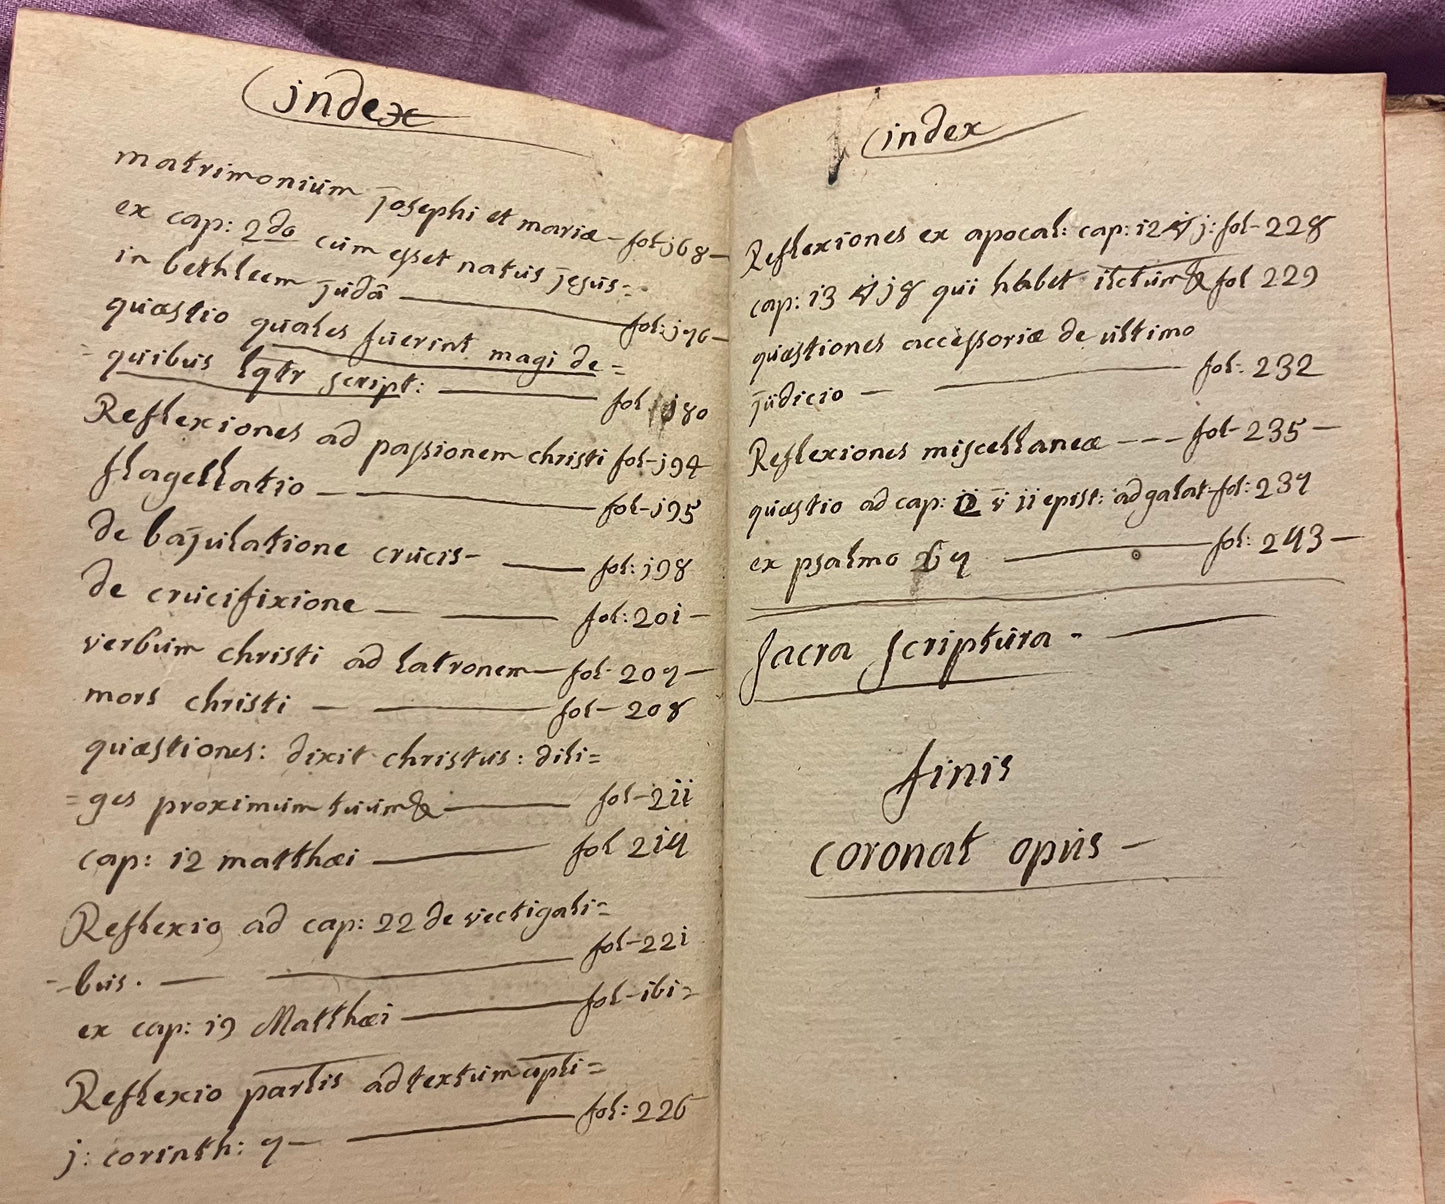 index
matrimonium Josephi et mariæ - fol: j68 -
ex cap: 2do cum esset natus Jesus =
in bethleem Juda — fol: j76 -
quæstio quales fuerint magi de =
- quibus lqtr script: — fol j80
Reflexiones ad passionem christi fol - j94
flagellatio — — fol - j95
de bajulatione crucis - — fol: j98
de crucifixione — — fol: 20i -
verbum christi ad latronem — fol - 207 -
mors christi — — fol - 208
quæstiones: dixit christus: dili =
= ges proximum tuum & — fol - 2ii
cap: i2 matthæi — fol 2i4
Reflexio ad cap: 22 de vectigali =
- bus. — — fol - 22i
ex cap: i9 Matthæi — fol - ibi =
Reflexio partis ad textum apli =
j: corinth: 7 — — fol: 226
index
Reflexiones ex apocal: cap: i2 v j: fol - 228
cap: i3 v j8 qui habet & fol 229
quæstiones accessoriæ de ultimo
judicio — — fol: 232
Reflexiones miscellaneæ - - - fol - 235 -
quæstio ad cap: v ii epist: ad galat - fol: 237
ex psalmo — fol: 243 —
sacra scriptura - —
finis
coronat opus -